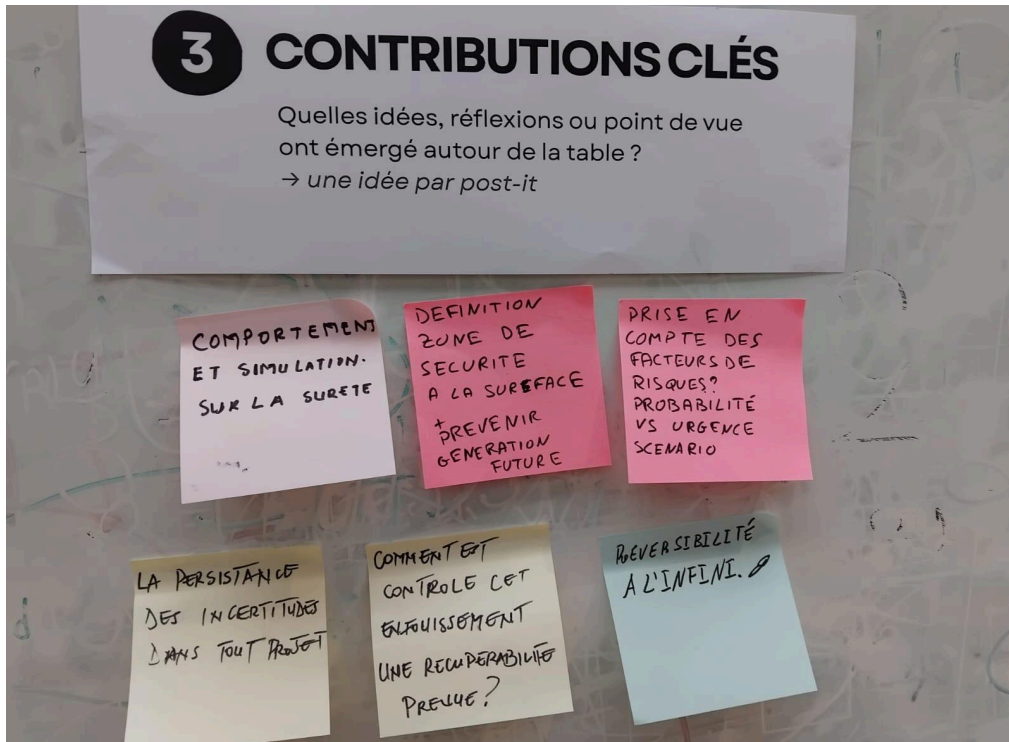 3 CONTRIBUTIONS CLÉS
Quelles idées, réflexions ou point de vue
ont émergé autour de la table ?
→ une idée par post-it
COMPORTEMENT
ET SIMULATION.
SUR LA SURETE
DEFINITION
ZONE DE
SECURITE
A LA SUREFACE
+
PREVENIR
GENERATION
FUTURE
PRISE EN
COMPTE DES
FACTEURS DE
RISQUES?
PROBABILITÉ
VS URGENCE
SCENARIO
LA PERSISTANCE
DES INCERTITUDES
DANS TOUT PROJET
COMMENT EST
CONTROLE CET
ENFOUISSEMENT
UNE RECUPERABILITE
PREVUE ?
REVERSIBILITÉ
A L'INFINI.